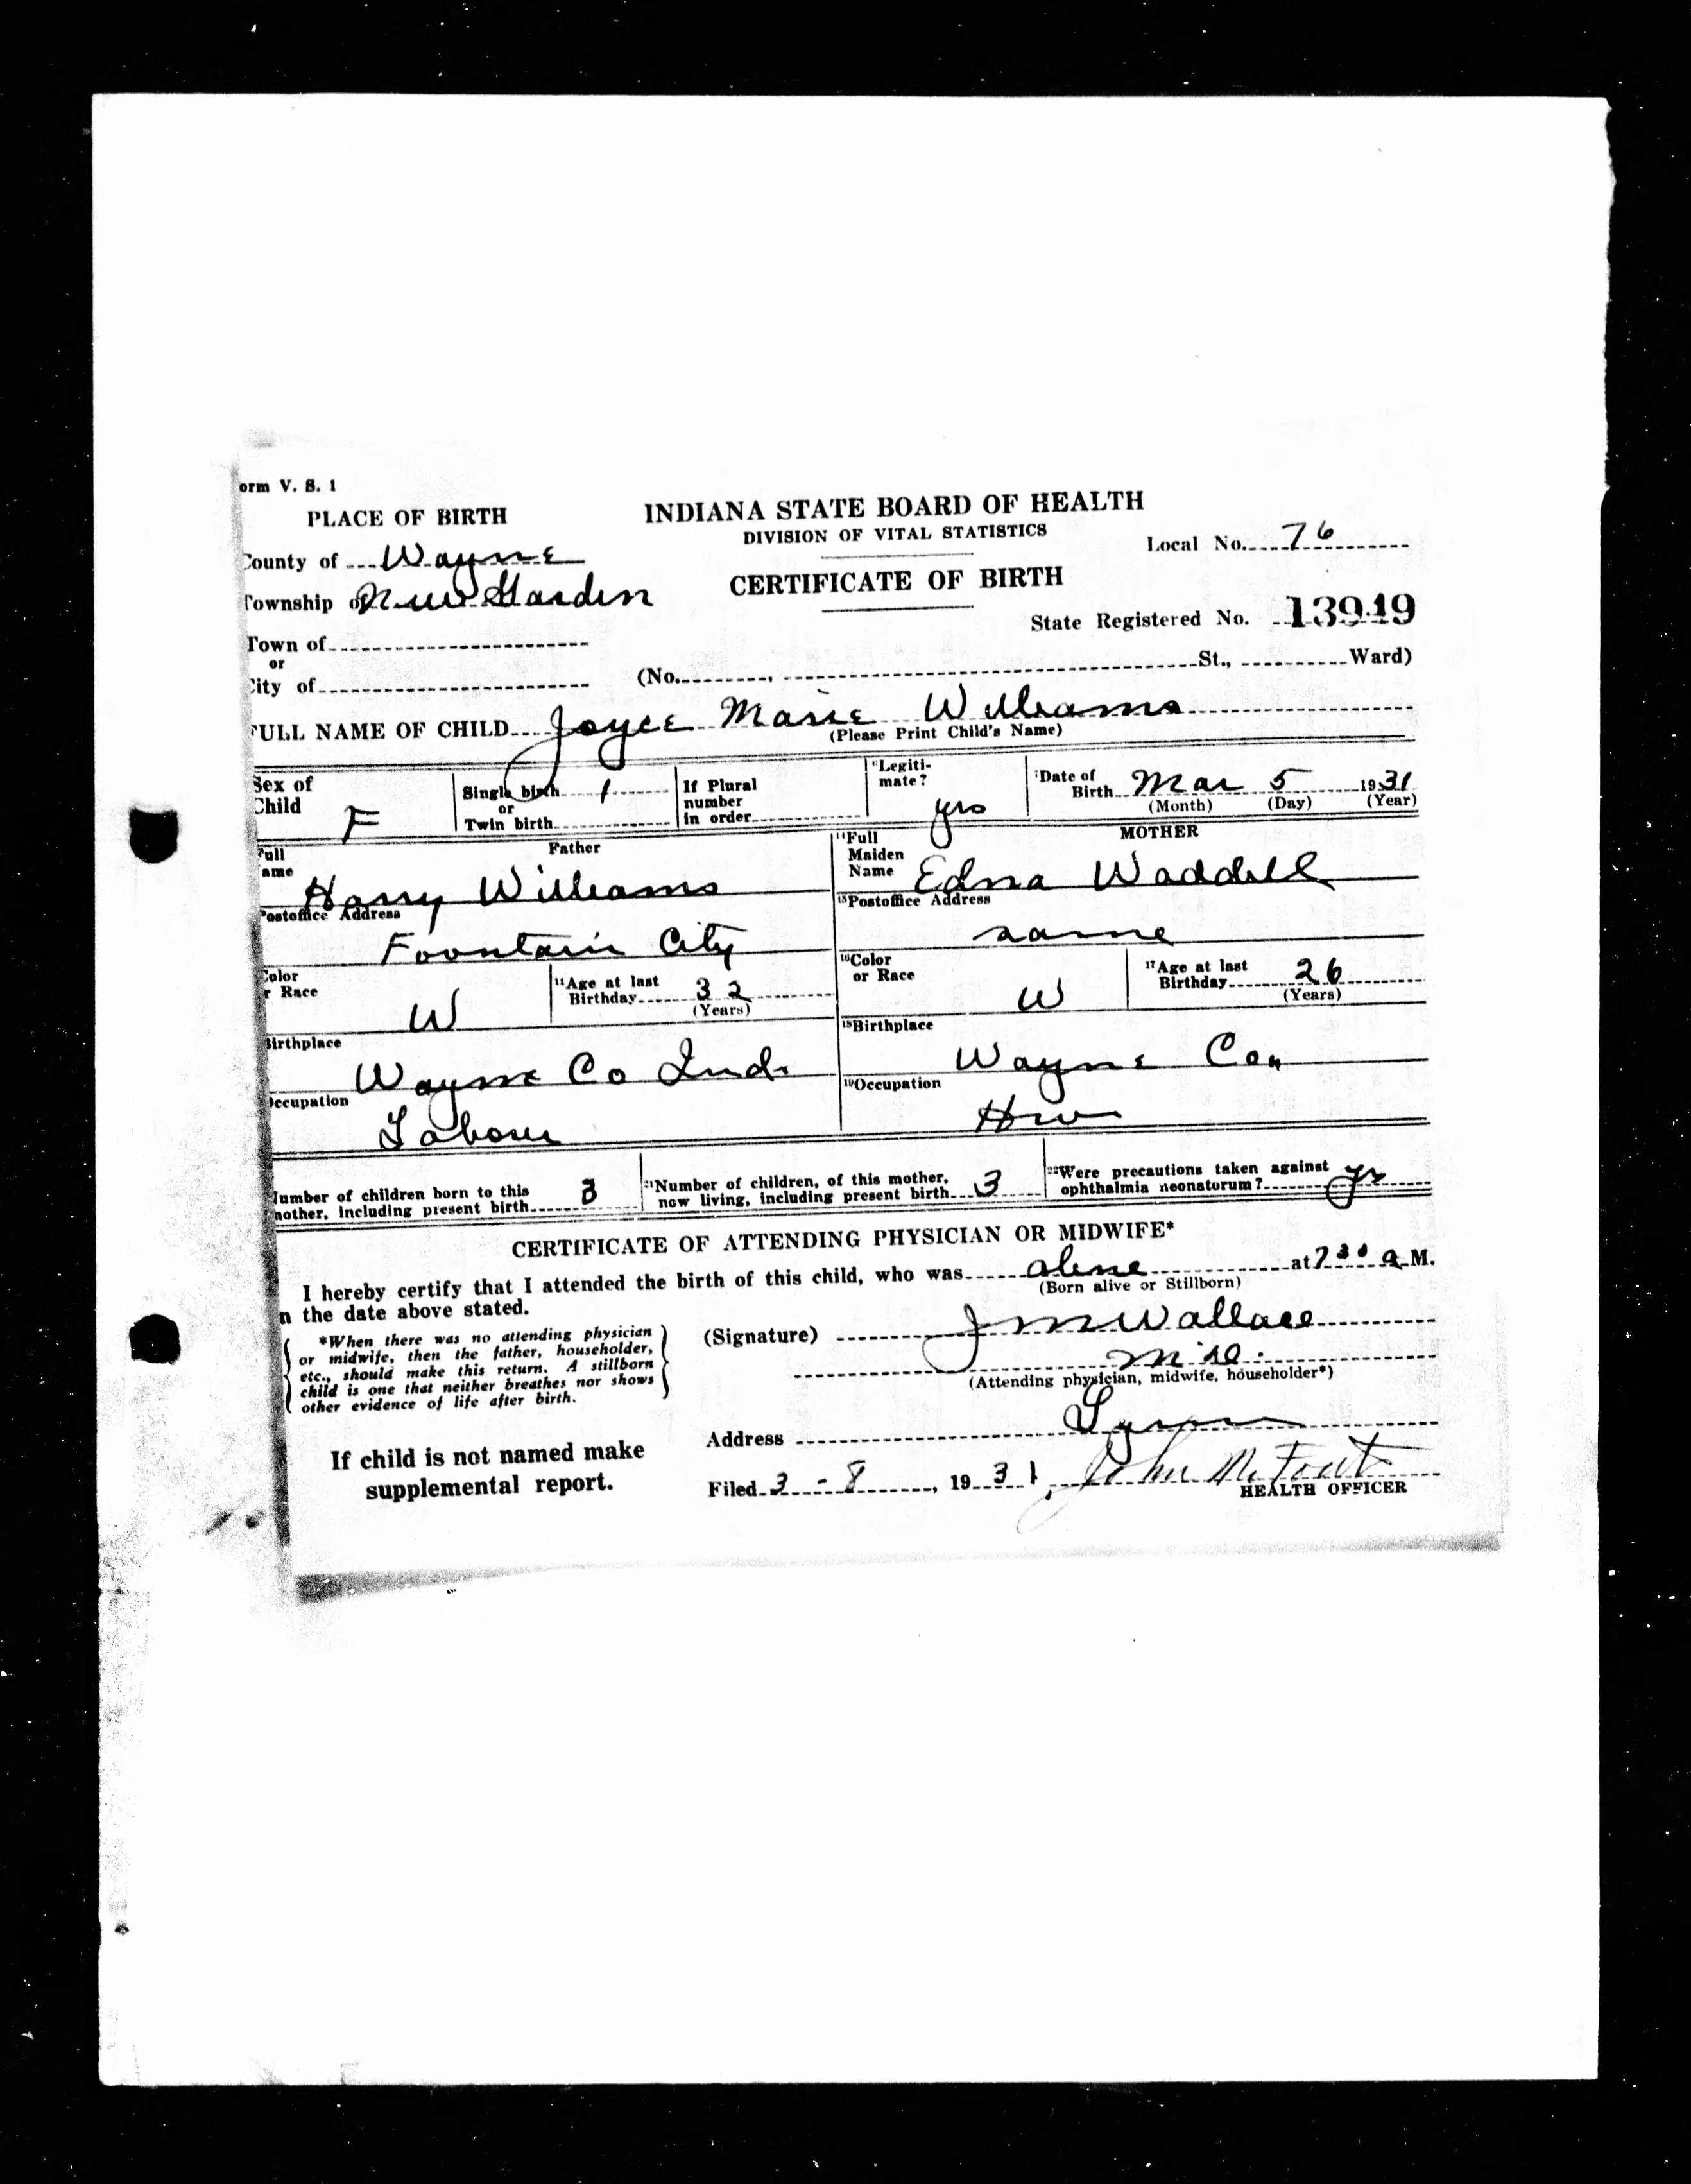 orm V. S. 1
PLACE OF BIRTH
INDIANA STATE BOARD OF HEALTH
DIVISION OF VITAL STATISTICS
County of Wayne
Local No. 76
Township of New Garden
CERTIFICATE OF BIRTH
State Registered No. 13949
Town of
or
City of
(No. , St., Ward)
FULL NAME OF CHILD Joyce Marie Williams
(Please Print Child's Name)
Sex of Child F
Single birth 1
or
Twin birth
If Plural
number
in order
Legiti-
mate? yes
Date of
Birth Mar 5 1931
(Month) (Day) (Year)
Full
ame
Father
Harry Williams
11Full
Maiden
Name
MOTHER
Edna Waddell
Postoffice Address
Fountain City
15Postoffice Address
same
Color
r Race
W
11Age at last
Birthday 32
(Years)
16Color
or Race
W
17Age at last
Birthday 26
(Years)
Birthplace
Wayne Co Ind.
18Birthplace
Wayne Co.
Occupation
Labour
19Occupation
Hw
Number of children born to this
mother, including present birth 3
21Number of children, of this mother,
now living, including present birth 3
22Were precautions taken against
ophthalmia neonatorum? ys
CERTIFICATE OF ATTENDING PHYSICIAN OR MIDWIFE*
I hereby certify that I attended the birth of this child, who was alive at 7 30 a M.
(Born alive or Stillborn)
n the date above stated.
*When there was no attending physician
or midwife, then the father, householder,
etc., should make this return. A stillborn
child is one that neither breathes nor shows
other evidence of life after birth.
(Signature) J M Wallace
M.D.
(Attending physician, midwife, householder*)
Address Lynn
If child is not named make
supplemental report.
Filed 3 - 8, 1931, John M. Fouts
HEALTH OFFICER